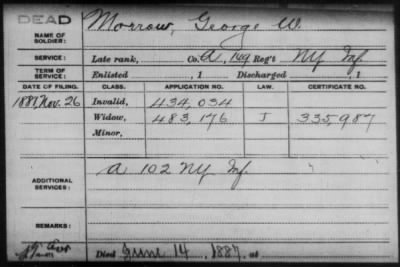 DEAD
NAME OF SOLDIER: Morrow, George W.
SERVICE: Late rank, Co. A, 149 Reg't NY Inf.
TERM OF SERVICE: Enlisted , 1 Discharged , 1
DATE OF FILING. CLASS. APPLICATION NO. LAW. CERTIFICATE NO.
1887, Nov. 26 Invalid, 434,034
Widow, 483,176 J 335,987
Minor,
ADDITIONAL SERVICES: A 102 NY Inf.
REMARKS:
Died June 14, 1887, at